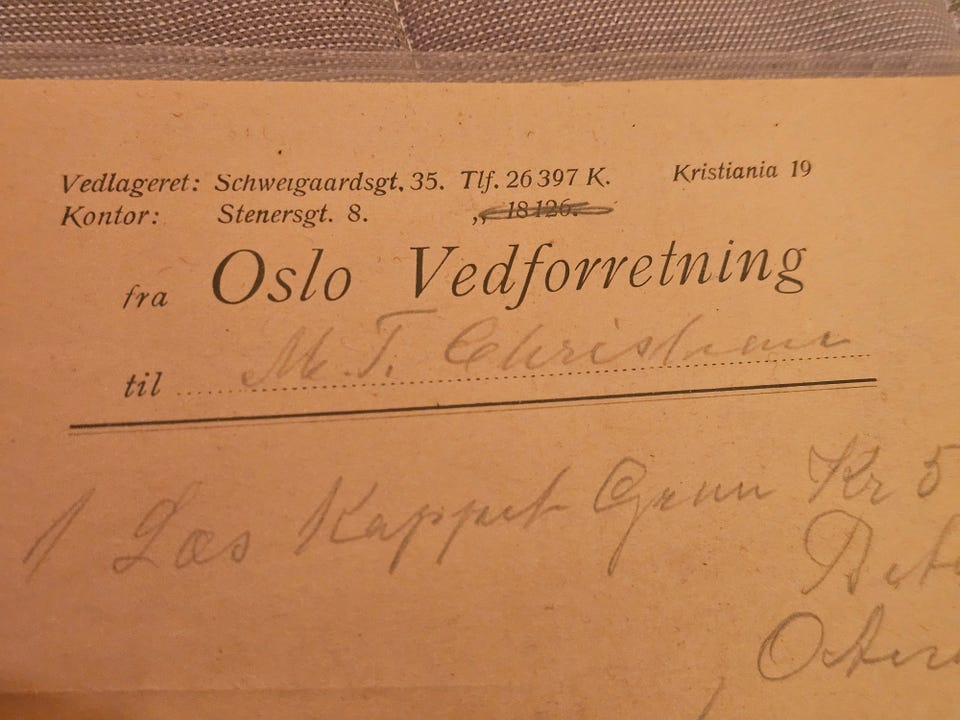 Vedlageret: Schweigaardsgt. 35. Tlf. 26397 K. Kristiania 19
Kontor: Stenersgt. 8. „ 18126.
fra Oslo Vedforretning
til M. T. Christians
1 Læs Kappet Gran Kr 5